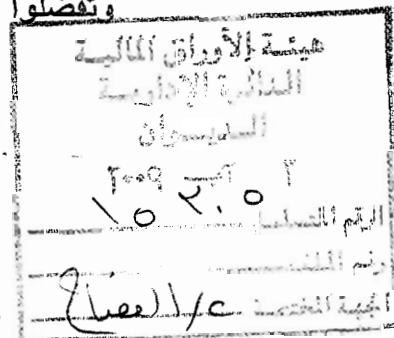 وتفضلوا
هيئة الأوراق المالية
الدائرة الإدارية
الديوان
٣ ٢٠٠٩
الرقم المتسلسل ١٥٢٠٥
رقم الملف
الجهة المختصة الافصاح